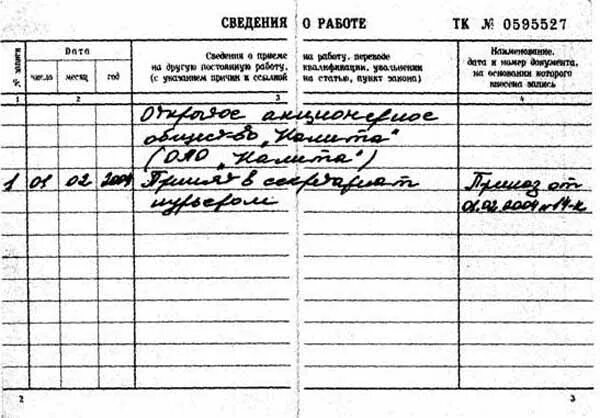 СВЕДЕНИЯ О РАБОТЕ ТК № 0595527
№ записи
Дата
число месяц год
Сведения о приеме на работу, переводе
на другую постоянную работу, квалификации, увольнении
(с указанием причин и ссылкой на статью, пункт закона)
Наименование,
дата и номер документа,
на основании которого
внесена запись
1 2 3 4
Открытое акционерное
общество „Калита"
(ОАО „Калита")
1 01 02 2004 Принят в секретариат Приказ от
курьером 01.02.2004 № 14-к
2 3